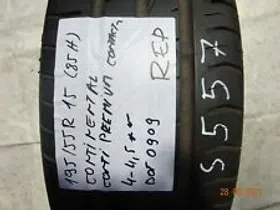 195/55R 15 (85H)
CONTINENTAL
CONTI PREMIUM CONTACT
4-4,5 mm
DOT 0909
REP
S557